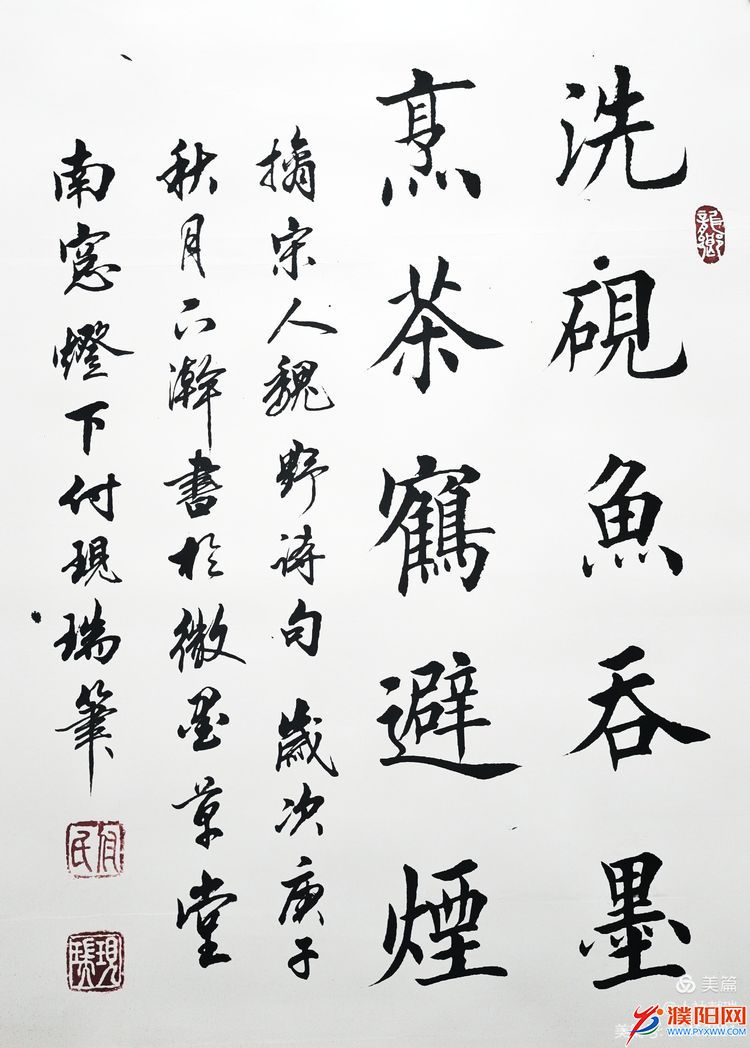 洗硯魚吞墨
烹茶鶴避煙
摘宋人魏野詩句 歲次庚子
秋月下瀚書於微墨草堂
南窓燈下付現瑞筆
龍鄉
付
民
現
瑞
美篇
濮阳网
WWW.PYXWW.COM